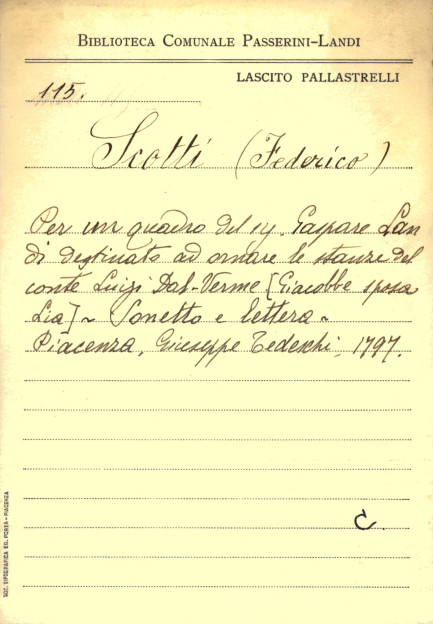 BIBLIOTECA COMUNALE PASSERINI-LANDI
LASCITO PALLASTRELLI
115.
Scotti (Federico)
Per un quadro del sig. Gaspare Lan
di destinato ad ornare le stanze del
conte Luigi Dal-Verme [Giacobbe sposa
Lia] ~ Sonetto e lettera ~
Piacenza, Giuseppe Tedeschi, 1797.
C.
SOC. TIPOGRAFICA ED. PORTA - PIACENZA